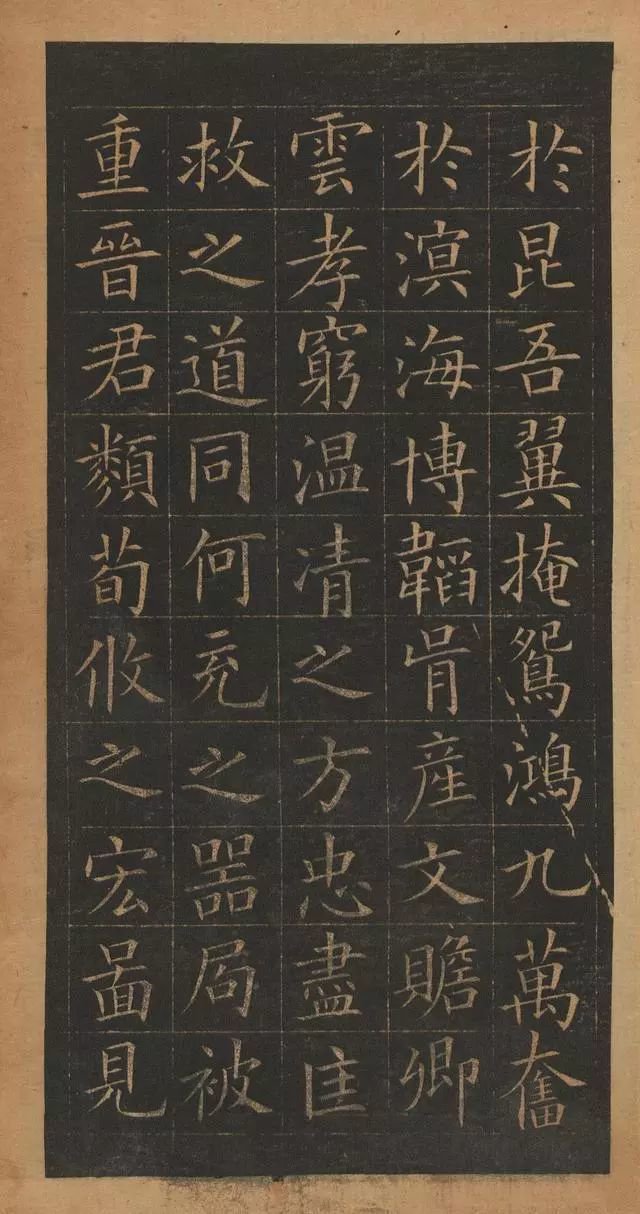 於昆吾翼掩鴛鴻九萬奮
於溟海博韜胥產文贍卿
雲孝窮温凊之方忠盡匡
救之道同何充之器局被
重晉君類荀攸之宏圖見